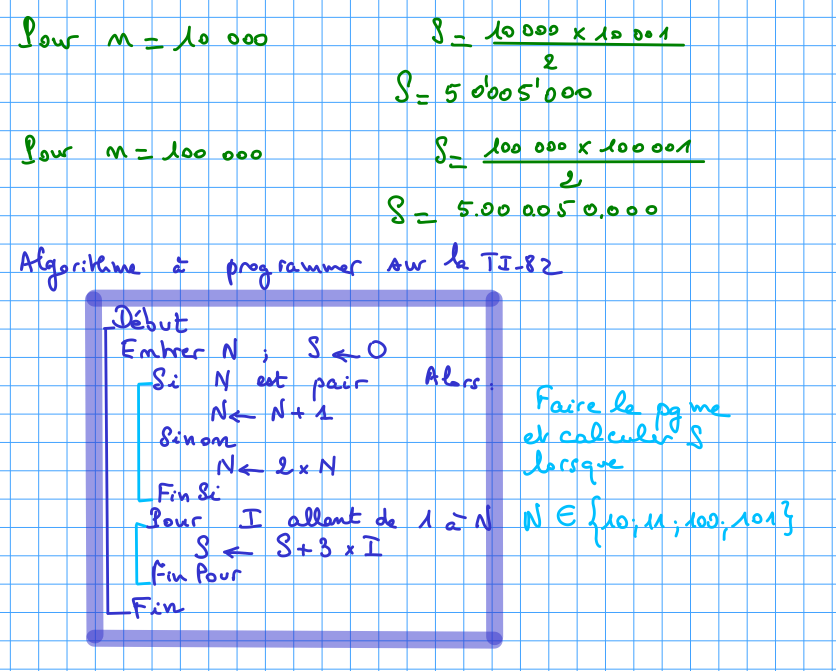 Pour n = 10 000 S = 10 000 x 10 001
2
S = 5 0'005'000
Pour n = 100 000 S = 100 000 x 100 001
2
S = 5.00 0.05 0.000
Algorithme à programmer sur la TI-82
Début
Entrer N ; S ← 0
Si N est pair Alors.
N ← N + 1
Sinon
N ← 2 x N
Fin Si
Pour I allant de 1 à N
S ← S + 3 x I
Fin Pour
Fin
Faire le pgme
et calculer S
lorsque
N ∈ {10; 11; 100; 101}